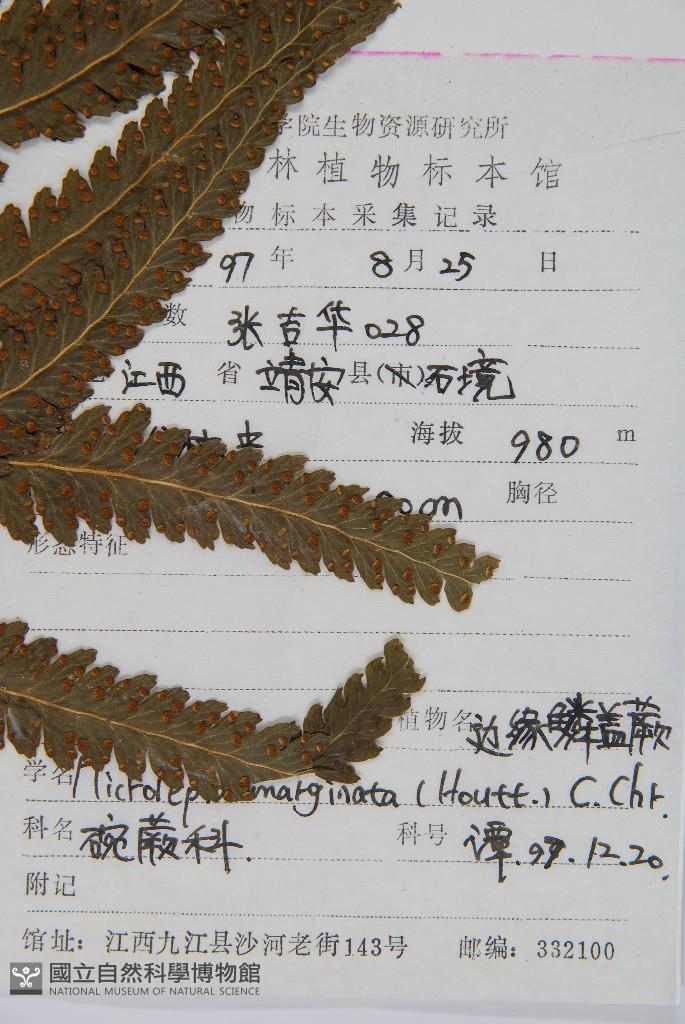 学院生物资源研究所
林植物标本馆
物标本采集记录
97年 8月25日
数 张吉华028
江西省靖安县(市)石境
海拔 980 m
0cm 胸径
形态特征
植物名 边缘鳞盖蕨
学名 marginata (Houtt.) C. Chr.
科名 碗蕨科. 科号 谭.97.12.20.
附记
馆址：江西九江县沙河老街143号 邮编：332100
國立自然科學博物館
NATIONAL MUSEUM OF NATURAL SCIENCE